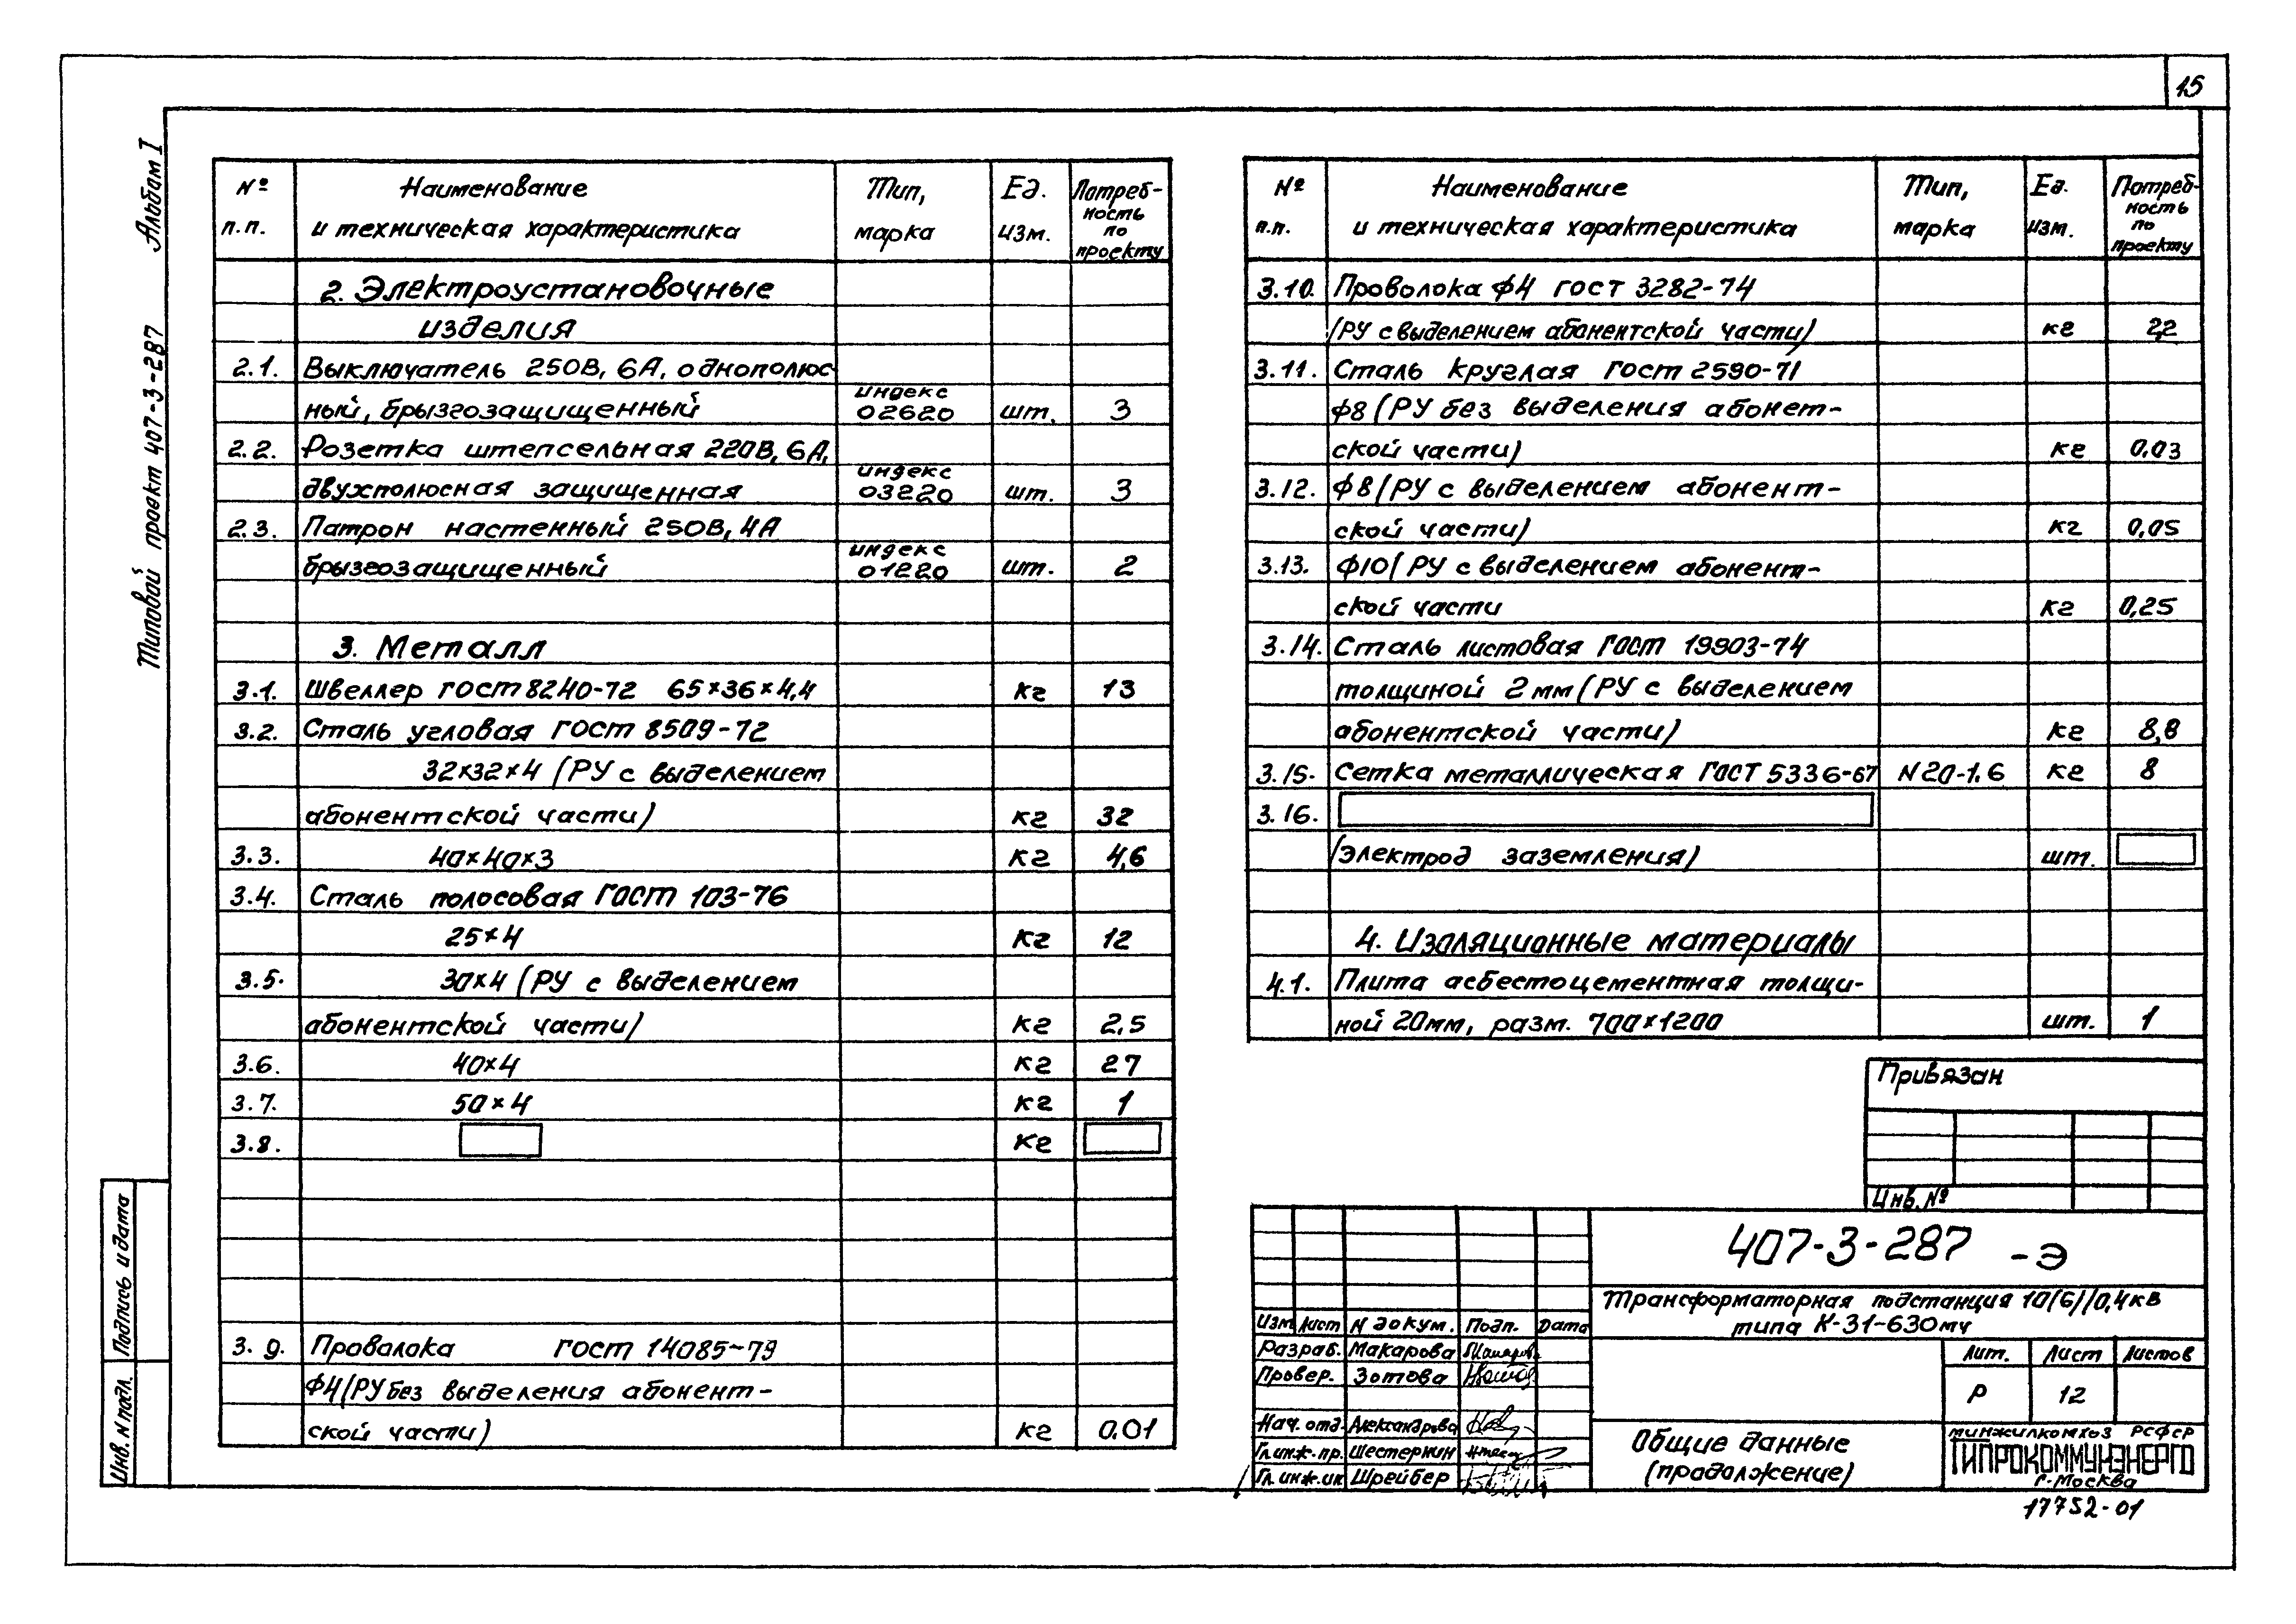 15
Типовой проект 407-3-287 Альбом I
№ п.п. Наименование и техническая характеристика Тип, марка Ед. изм. Потреб-ность по проекту
2. Электроустановочные
изделия
2.1. Выключатель 250В, 6А, однополюс-
ный, брызгозащищенный индекс 02620 шт. 3
2.2. Розетка штепсельная 220В, 6А,
двухполюсная защищенная индекс 03220 шт. 3
2.3. Патрон настенный 250В, 4А
брызгозащищенный индекс 01220 шт. 2
3. Металл
3.1. Швеллер ГОСТ 8240-72 65×36×4,4 кг 13
3.2. Сталь угловая ГОСТ 8509-72
32×32×4 (РУ с выделением
абонентской части) кг 32
3.3. 40×40×3 кг 4,6
3.4. Сталь полосовая ГОСТ 103-76
25×4 кг 12
3.5. 30×4 (РУ с выделением
абонентской части) кг 2,5
3.6. 40×4 кг 27
3.7. 50×4 кг 1
3.8. кг
3.9. Проволока ГОСТ 14085-79
Ф4 (РУ без выделения абонент-
ской части) кг 0.01
№ п.п. Наименование и техническая характеристика Тип, марка Ед. изм. Потреб-ность по проекту
3.10. Проволока ф4 ГОСТ 3282-74
(РУ с выделением абонентской части) кг 2,2
3.11. Сталь круглая ГОСТ 2590-71
ф8 (РУ без выделения абонет-
ской части) кг 0.03
3.12. ф8 (РУ с выделением абонент-
ской части) кг 0,05
3.13. ф10 (РУ с выделением абонент-
ской части кг 0,25
3.14. Сталь листовая ГОСТ 19903-74
толщиной 2 мм (РУ с выделением
абонентской части) кг 8,8
3.15. Сетка металлическая ГОСТ 5336-67 N20-1.6 кг 8
3.16.
(Электрод заземления) шт.
4. Изоляционные материалы
4.1. Плита асбестоцементная толщи-
ной 20мм, разм. 700×1200 шт. 1
Привязан
Инв. №
407-3-287 -Э
Трансформаторная подстанция 10(6)/0,4кВ
типа К-31-630му
Изм Лист N докум. Подп. Дата
Разраб. Макарова
Провер. Зотова
Нач. отд. Александрова
Гл.инж.пр. Шестернин
Гл.инж.ин Шрейбер
Лит. Лист Листов
Р 12
Общие данные
(продолжение)
Минжилкомхоз РСФСР
ГИПРОКОММУНЭНЕРГО
г. Москва
17752-01
Подпись и дата
Инв. N подл.